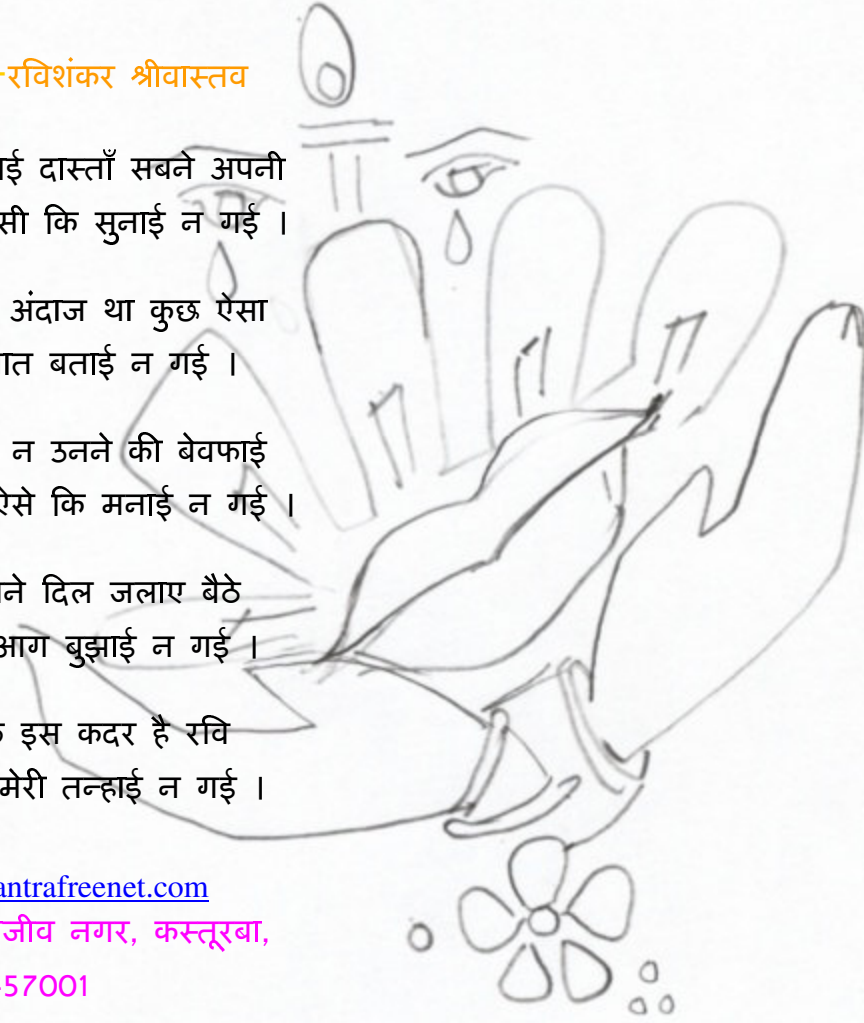 -रविशंकर श्रीवास्तव
दास्ताँ सबने अपनी
कि सुनाई न गई ।
अंदाज था कुछ ऐसा
बताई न गई ।
न उनने की बेवफाई
ऐसे कि मनाई न गई ।
दिल जलाए बैठे
आग बुझाई न गई ।
इस कदर है रवि
मेरी तन्हाई न गई ।
antrafreenet.com
नगर, कस्तूरबा,
57001